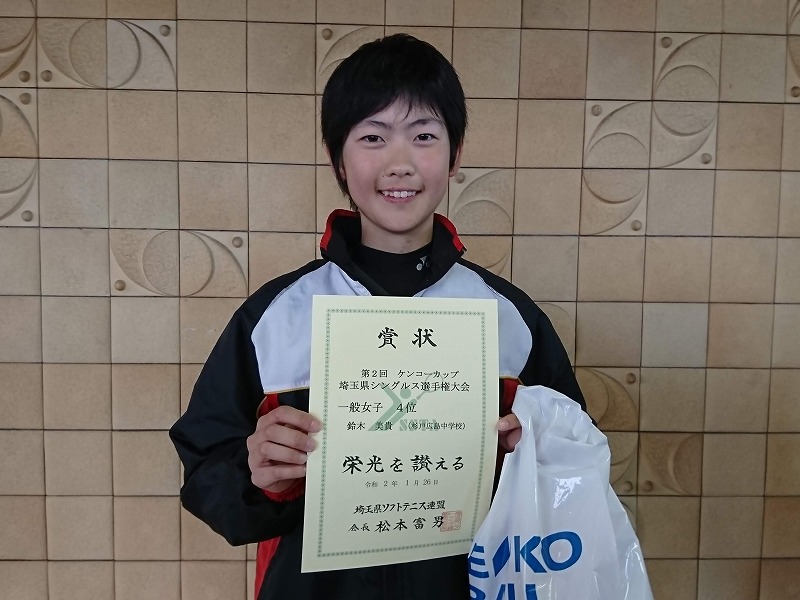 賞状
第2回 ケンコーカップ
埼玉県シングルス選手権大会
一般女子 4位
鈴木 美貴 (杉戸広島中学校)
栄光を讃える
令和 2年 1月 26日
埼玉県ソフトテニス連盟
会長 松本富男
KO